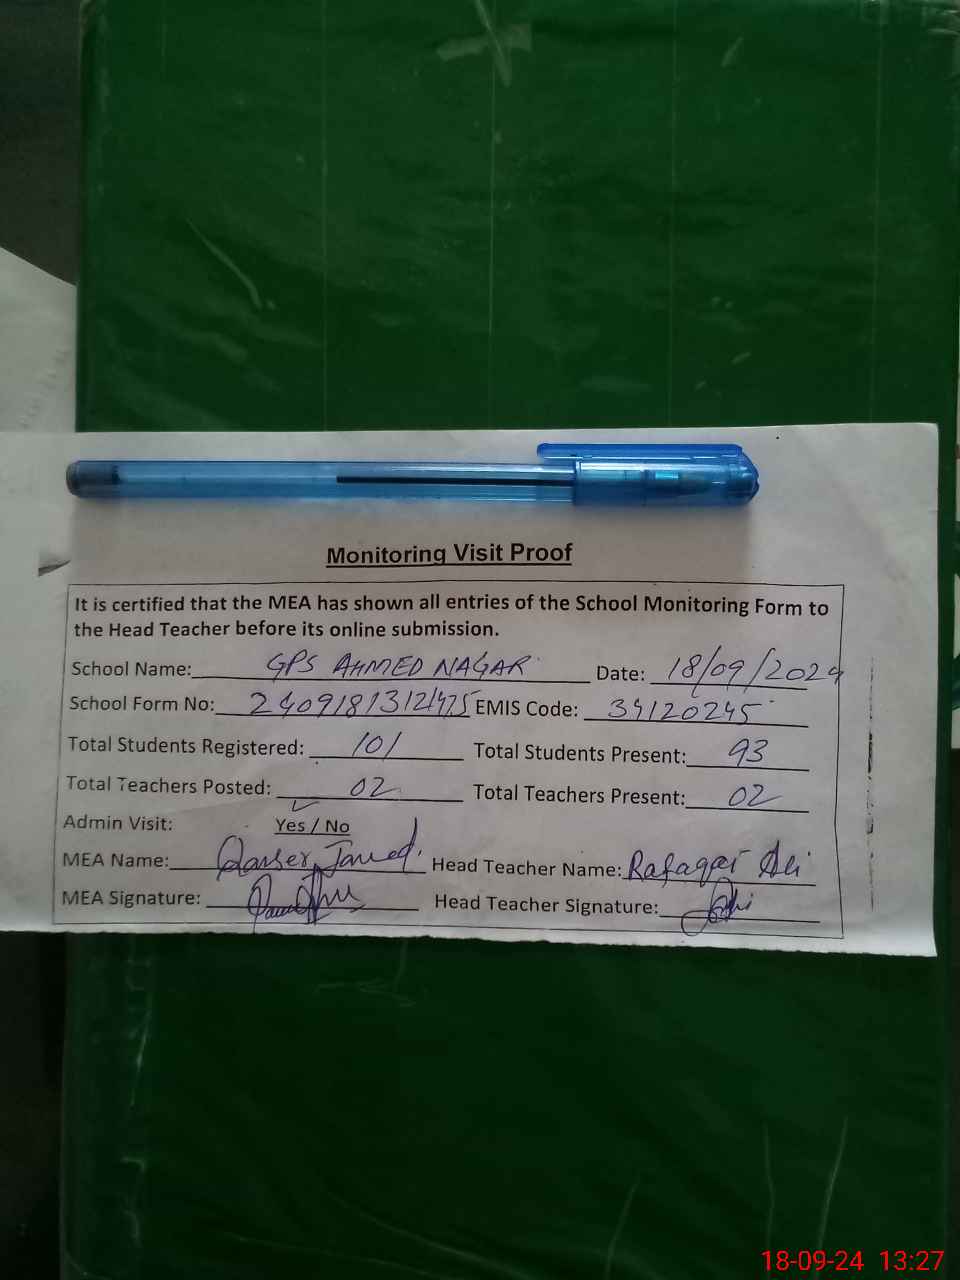 Monitoring Visit Proof
It is certified that the MEA has shown all entries of the School Monitoring Form to
the Head Teacher before its online submission.
School Name: GPS AHMED NAGAR Date: 18/09/2024
School Form No: 24091813121475 EMIS Code: 34120245
Total Students Registered: 101 Total Students Present: 93
Total Teachers Posted: 02 Total Teachers Present: 02
Admin Visit: Yes / No
MEA Name: Qanser Javed. Head Teacher Name: Rafaqat Ali
MEA Signature: Head Teacher Signature:
18-09-24 13:27